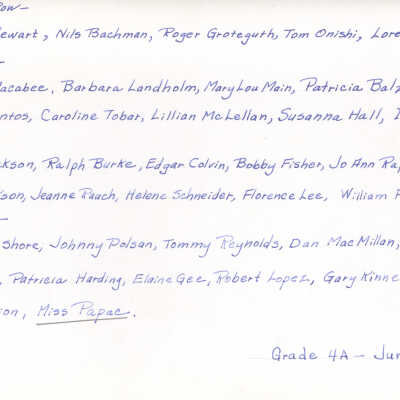 Row —
ewart, Nils Bachman, Roger Groteguth, Tom Onishi, Lore
—
acabee, Barbara Landholm, Mary Lou Main, Patricia Balz
ntos, Caroline Tobar, Lillian McLellan, Susanna Hall,
ckson, Ralph Burke, Edgar Colvin, Bobby Fisher, Jo Ann Ra
son, Jeanne Rauch, Helene Schneider, Florence Lee, William
—
Shore, Johnny Polsan, Tommy Reynolds, Dan MacMillan,
, Patricia Harding, Elaine Gee, Robert Lopez, Gary Kinne
son, Miss Papac.
Grade 4A — Jun